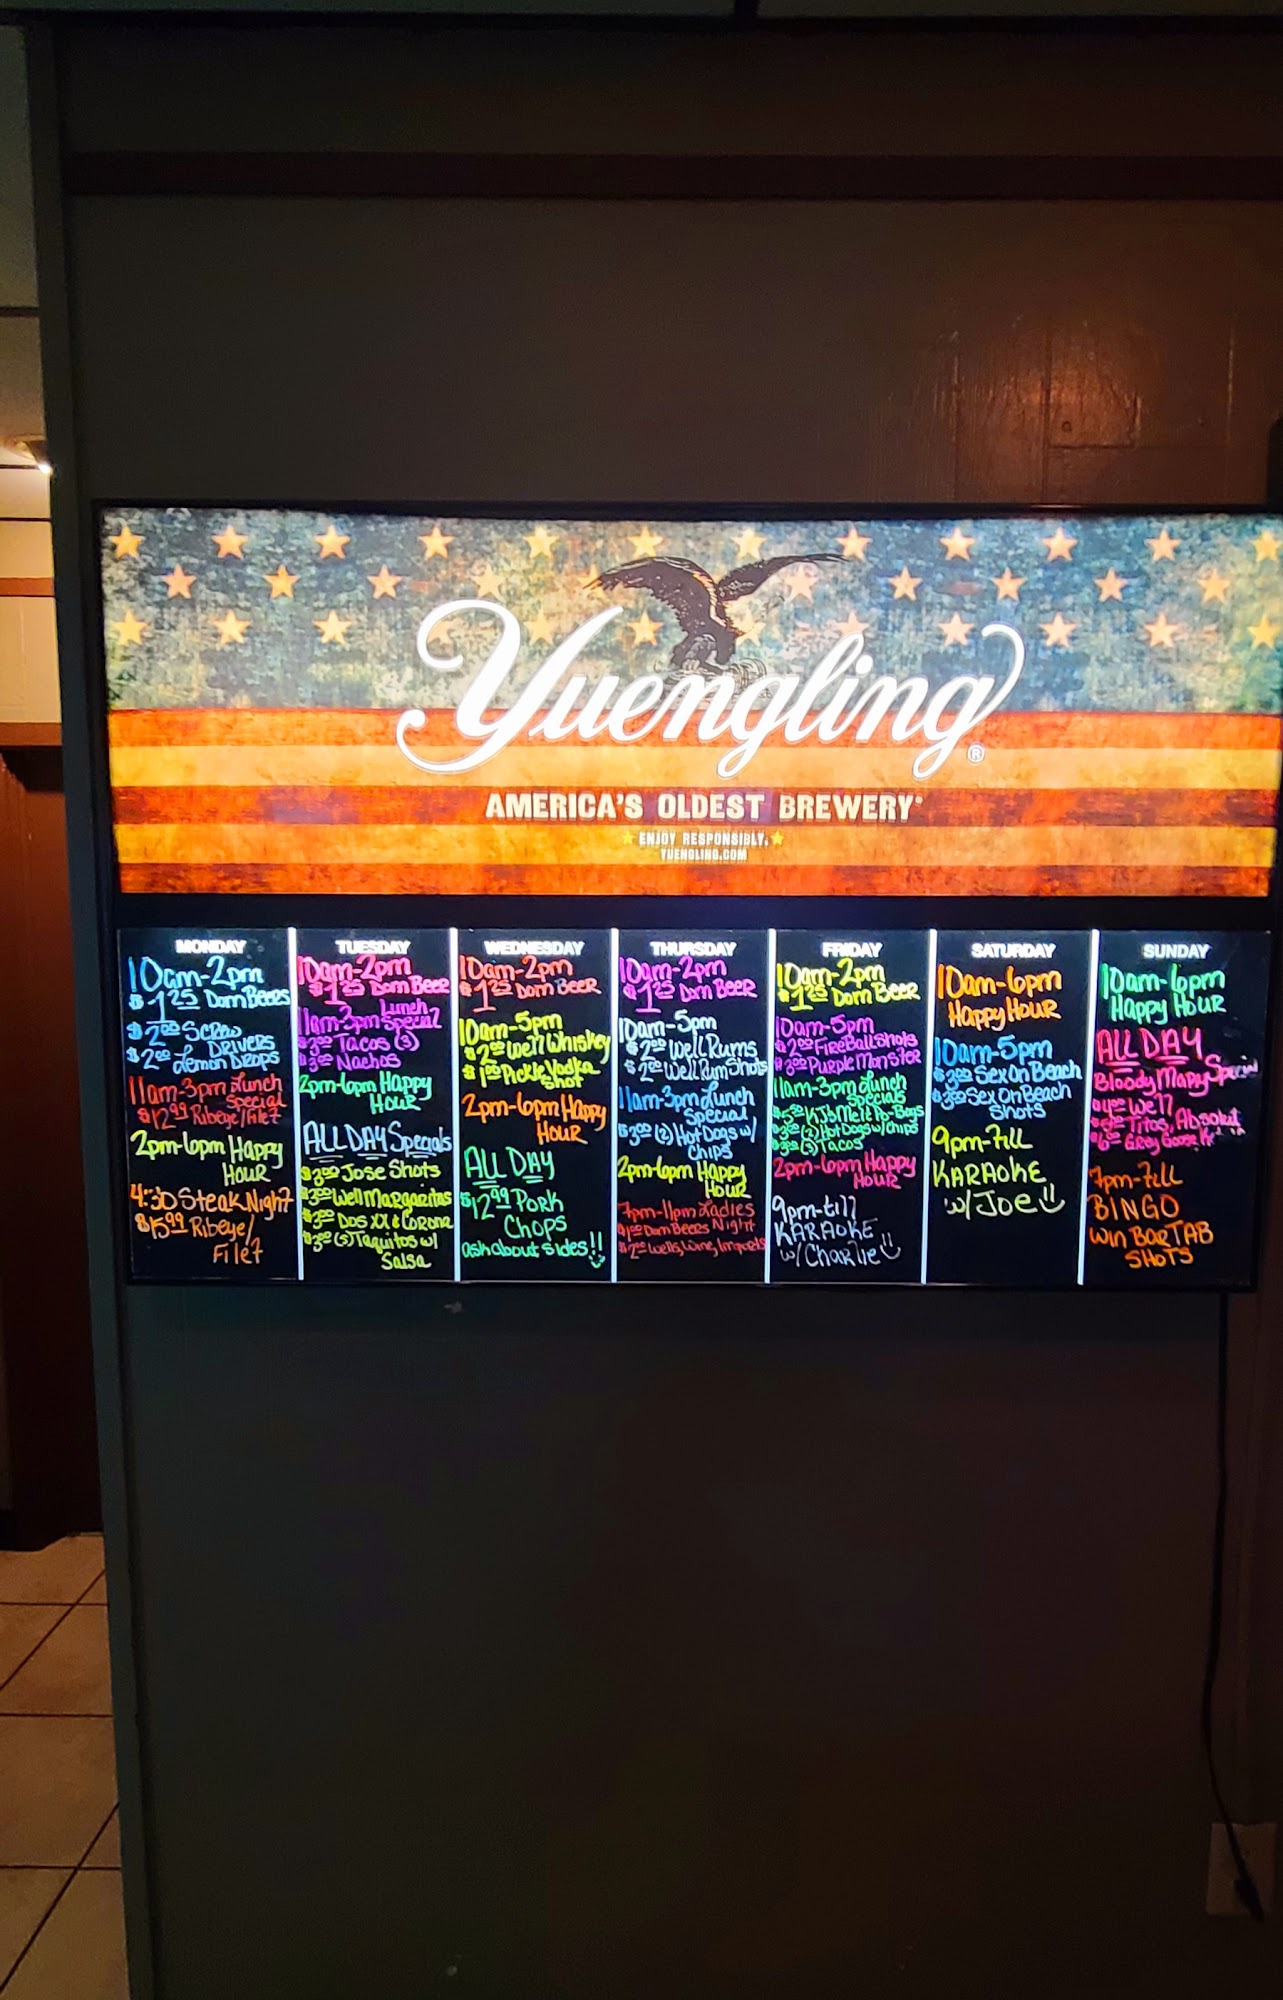 Yuengling®
AMERICA'S OLDEST BREWERY®
ENJOY RESPONSIBLY.
YUENGLING.COM
MONDAY
10am-2pm
$1.25 Dom Beers
$2.00 Screw
Drivers
$2.00 Lemon Drops
11am-3pm Lunch
Special
$12.99 Ribeye/Filet
2pm-6pm Happy
Hour
4:30 Steak Night
$15.99 Ribeye/
Filet
TUESDAY
10am-2pm
$1.25 Dom Beer
Lunch
11am-3pm Special
$3.00 Tacos (3)
$3.00 Nachos
2pm-6pm Happy
Hour
ALL DAY Specials
$3.00 Jose Shots
$3.00 Well Margaritas
$3.00 Dos XX & Corona
$3.00 (5) Taquitos w/
Salsa
WEDNESDAY
10am-2pm
$1.25 Dom Beer
10am-5pm
$2.00 Well Whiskey
$1.00 Pickle Vodka
Shot
2pm-6pm Happy
Hour
ALL DAY
$12.99 Pork
Chops
ask about sides!!
THURSDAY
10am-2pm
$1.25 Dom Beer
10am-5pm
$2.00 Well Rums
$2.00 Well Rum Shots
11am-3pm Lunch
Special
$3.00 (2) Hot Dogs w/
Chips
2pm-6pm Happy
Hour
7pm-11pm Ladies
Dom Beers Night
Wells, Wine, Imports
FRIDAY
10am-2pm
$1.25 Dom Beer
10am-5pm
$2.00 FireBall Shots
$3.00 Purple Monster
11am-3pm Lunch
Specials
KJs Melt Po-Boys
$3.00 (2) Hot Dogs w/ Chips
$3.00 (3) Tacos
2pm-6pm Happy
Hour
9pm-till
KARAOKE
w/ Charlie
SATURDAY
10am-6pm
Happy Hour
10am-5pm
$3.00 Sex On Beach
Sex On Beach
Shots
9pm-till
KARAOKE
w/ Joe
SUNDAY
10am-6pm
Happy Hour
ALL DAY
Bloody Mary Special
Well
Titos, Absolut
Grey Goose
7pm-till
BINGO
Win Bar TAB
SHOTS